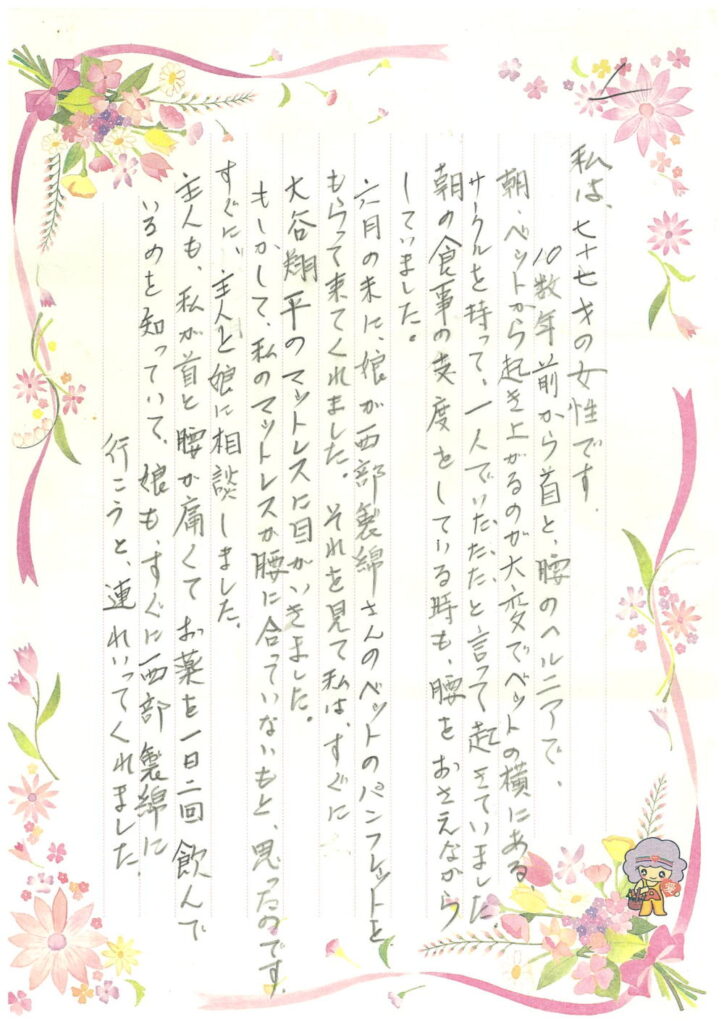 私は、七十七才の女性です.
10数年前から首と、腰のヘルニアで、
朝・ベットから起き上がるのが大変でベットの横にある
サークルを持って、一人でいたたたと言って起きていました.
朝の食事の支度をしている時も、腰をおさえながら
していました。
六月の末に、娘が西部製綿さんのベットのパンフレットを
もらって来てくれました。それを見て私は、すぐに
大谷翔平のマットレスに目がいきました。
もしかして、私のマットレスが腰に合っていないもと、思ったのです.
すぐに、主人と娘に相談しました.
主人も、私が首と腰が痛くてお薬を一日二回飲んで
いるのを知っていて、娘も、すぐに西部製綿に
行こうと、連れいってくれました.